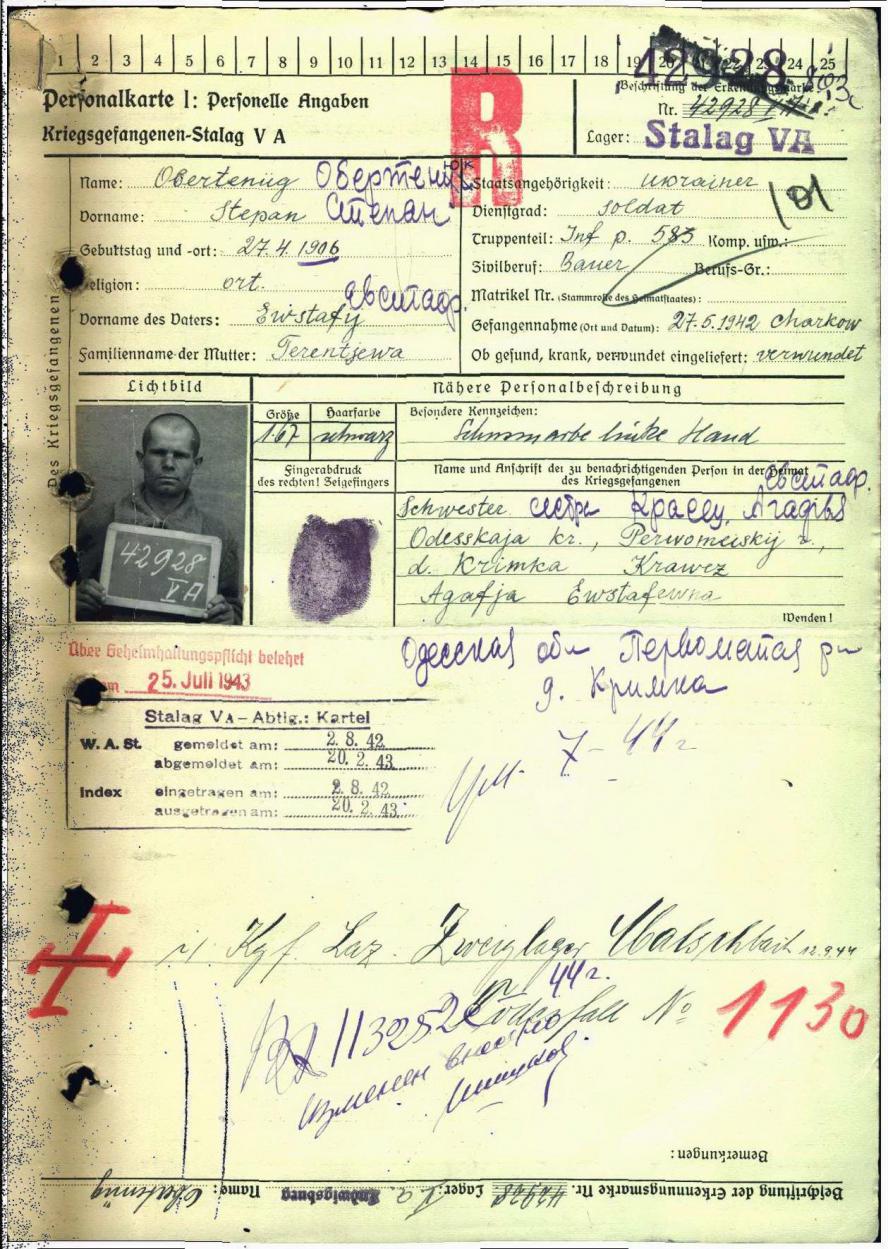 1 2 3 4 5 6 7 8 9 10 11 12 13 14 15 16 17 18 19 20 22 23 24 25
42928
Personalkarte I: Personelle Angaben
Beschriftung der Erkennungsmarke
Nr. 42928
Kriegsgefangenen-Stalag V A
Lager: Stalag VA
R
Des Kriegsgefangenen
Name: Obertenüg Обертенюк
Vorname: Stepan Степан
Geburtstag und -ort: 27.4.1906
Religion: ort.
Vorname des Vaters: Ewstafy Евстаф.
Familienname der Mutter: Terentjewa
Staatsangehörigkeit: Ukrainer
101
Dienstgrad: Soldat
Truppenteil: Inf p. 583 Komp. usw.:
Zivilberuf: Bauer Berufs-Gr.:
Matrikel Nr. (Stammrolle des Heimatstaates):
Gefangennahme (Ort und Datum): 27.5.1942 Charkow
Ob gesund, krank, verwundet eingeliefert: verwundet
Lichtbild
Nähere Personalbeschreibung
Größe Haarfarbe Besondere Kennzeichen:
1.67 schwarz linke Hand
Fingerabdruck
des rechten! Zeigefingers
Name und Anschrift der zu benachrichtigenden Person in der Heimat
des Kriegsgefangenen
Евстаф.
Schwester сестра
Odesskaja kr., Perwomeiskij r.,
d. Krimka Krawez
Agafja Ewstafewna
Wenden!
42928
V A
Über Geheimhaltungspflicht belehrt
am 25. Juli 1943
Одесская обл Первомайск рн
д. Кримка
Stalag VA – Abtlg.: Kartei
W. A. St. gemeldet am: 2. 8. 42
abgemeldet am: 20. 2. 43
Index eingetragen am: 2. 8. 42
ausgetragen am: 20. 2. 43
ум. 7 - 44 г
Kgf. Laz. Zweiglager 12.9.44
Todesfall No 1130
44 г.
Bemerkungen:
Beschriftung der Erkennungsmarke Nr. 42928 Lager Ludwigsburg Name: